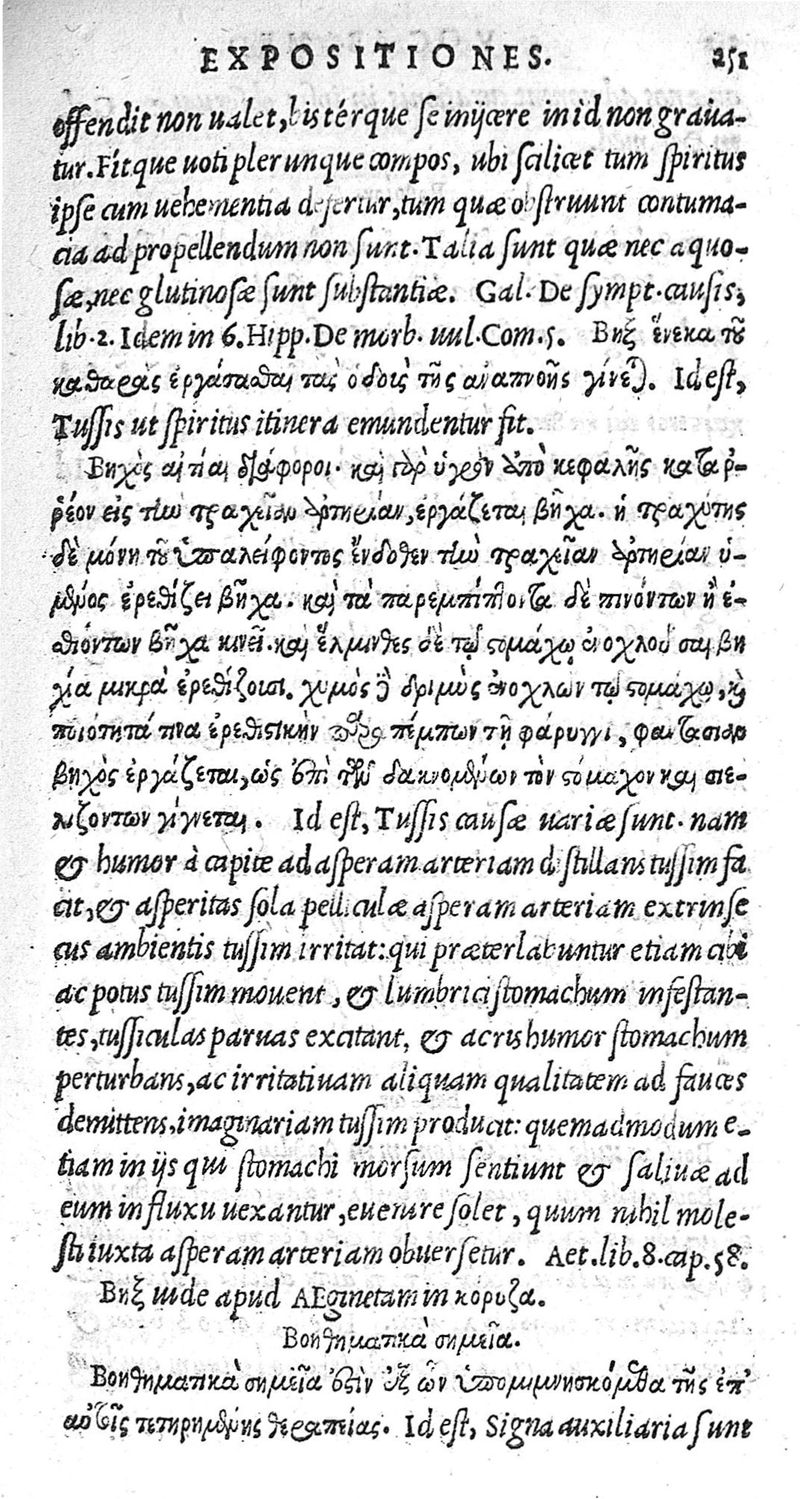 EXPOSITIONES. 251
offendit non ualet, bis térque se inijcere in id non graua-
tur. Fít que uoti plerunque compos, ubi scilicet tum spiritus
ipse cum uehementia defertur, tum quæ obstruunt contuma-
cia ad propellendum non sunt. Talia sunt quæ nec aquo-
sæ, nec glutinosæ sunt substantiæ. Gal. De sympt. causis,
lib. 2. Idem in 6. Hipp. De morb. uul. Com. 5. Βηξ ἕνεκα τοῦ
καθαρὰς ἐργάσασθαι τὰς ὁδοὺς τῆς ἀναπνοῆς γίνεται. Id est,
Tussis ut spiritus itinera emundentur fit.
Βηχὸς αἰτίαι διάφοροι. καὶ γὰρ ὑγρὸν ἀπὸ κεφαλῆς καταρ-
ρέον εἰς τὴν τραχεῖαν ἀρτηρίαν, ἐργάζεται βῆχα. ἡ τραχύτης
δὲ μόνη τοῦ ὑπαλείφοντος ἔνδοθεν τὴν τραχεῖαν ἀρτηρίαν ὑ-
μένος ἐρεθίζει βῆχα. καὶ τὰ παρεμπίπτοντα δὲ πινόντων ἢ ἐ-
σθιόντων βῆχα κινεῖ. καὶ ἕλμινθες δὲ τῷ στομάχῳ ἐνοχλοῦσαι βη
χία μικρὰ ἐρεθίζουσι. χυμὸς δὲ δριμὺς ἐνοχλῶν τῷ στομάχῳ, καὶ
ποιότητά τινα ἐρεθιστικὴν πέμπων τῇ φάρυγγι, φαντασίαν
βηχὸς ἐργάζεται, ὡς ἐπὶ τῶν δακνομένων τὸν στόμαχον καὶ σιε-
λιζόντων γίγνεται. Id est, Tussis causæ uariæ sunt. nam
& humor à capite ad asperam arteriam distillans tussim fa
cit, & asperitas sola pelliculæ asperam arteriam extrinse
cus ambientis tussim irritat: qui præterlabuntur etiam cibi
ac potus tussim mouent, & lumbrici stomachum infestan-
tes, tussiculas paruas excitant, & acris humor stomachum
perturbans, ac irritatiuam aliquam qualitatem ad fauces
demittens, imaginariam tussim producit: quemadmodum e-
tiam in ijs qui stomachi morsum sentiunt & saliuæ ad
eum influxu uexantur, euenire solet, quum nihil mole-
sti iuxta asperam arteriam obuersetur. Aet. lib. 8. cap. 58.
Βηξ uide apud AEginetam in κορυζα.
Βοηθηματικὰ σημεῖα.
Βοηθηματικὰ σημεῖα ἐστὶν ἐξ ὧν ὑπομιμνησκόμεθα τῆς ἐπ'
αὐτοῖς τετηρημένης θεραπείας. Id est, Signa auxiliaria sunt